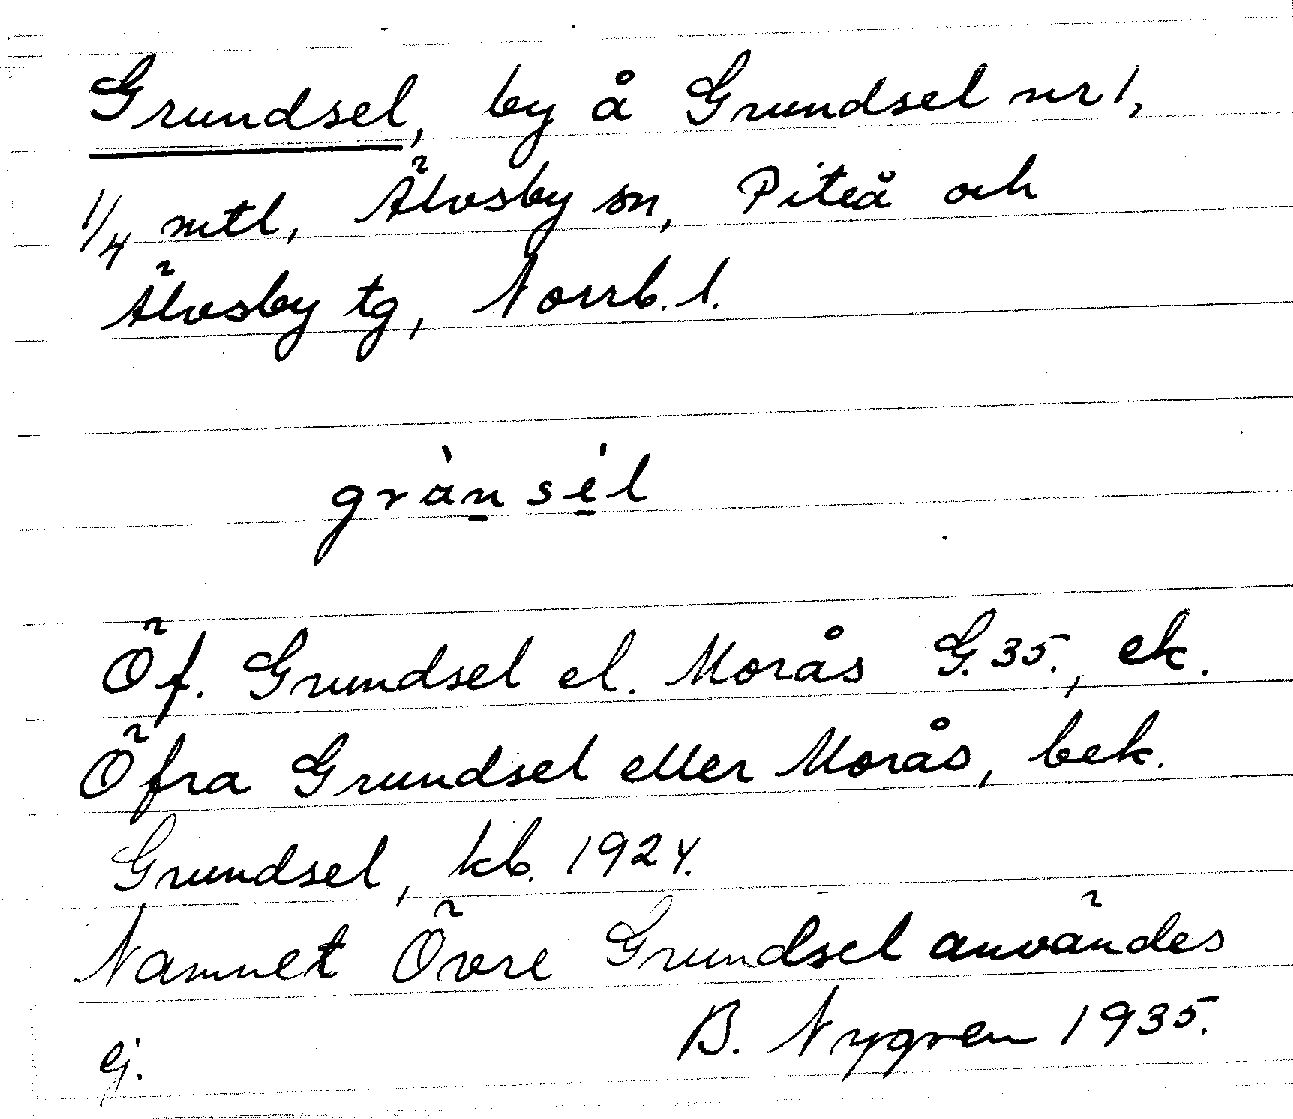 Grundsel, by å Grundsel nr 1,
1/4 mtl, Älvsby sn, Piteå och
Älvsby tg, Norrb. l.
grànsél
Öf. Grundsel el. Morås G.35., ek.
Öfra Grundsel eller Morås, bek.
Grundsel, kb. 1924.
Namnet Övre Grundsel användes
ej. B. Nygren 1935.